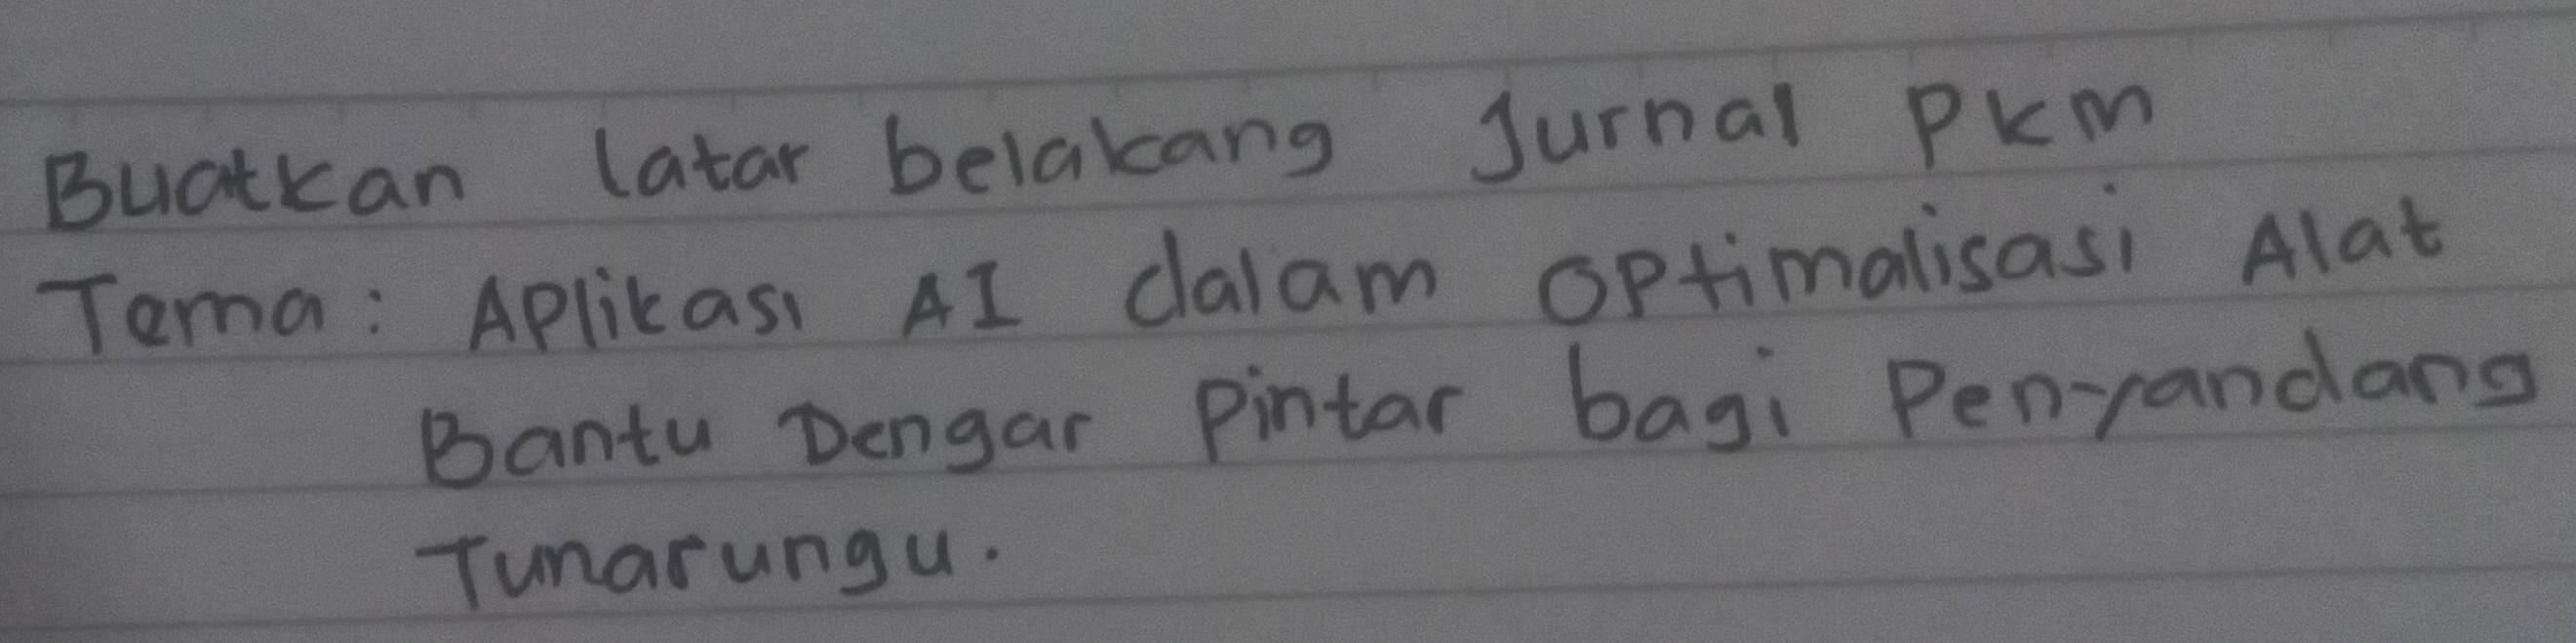 Buatkan latar belakang Jurnal PKM
Tema: Aplikasi AI dalam optimalisasi Alat
Bantu Dengar Pintar bagi Penyandang
Tunarungu.